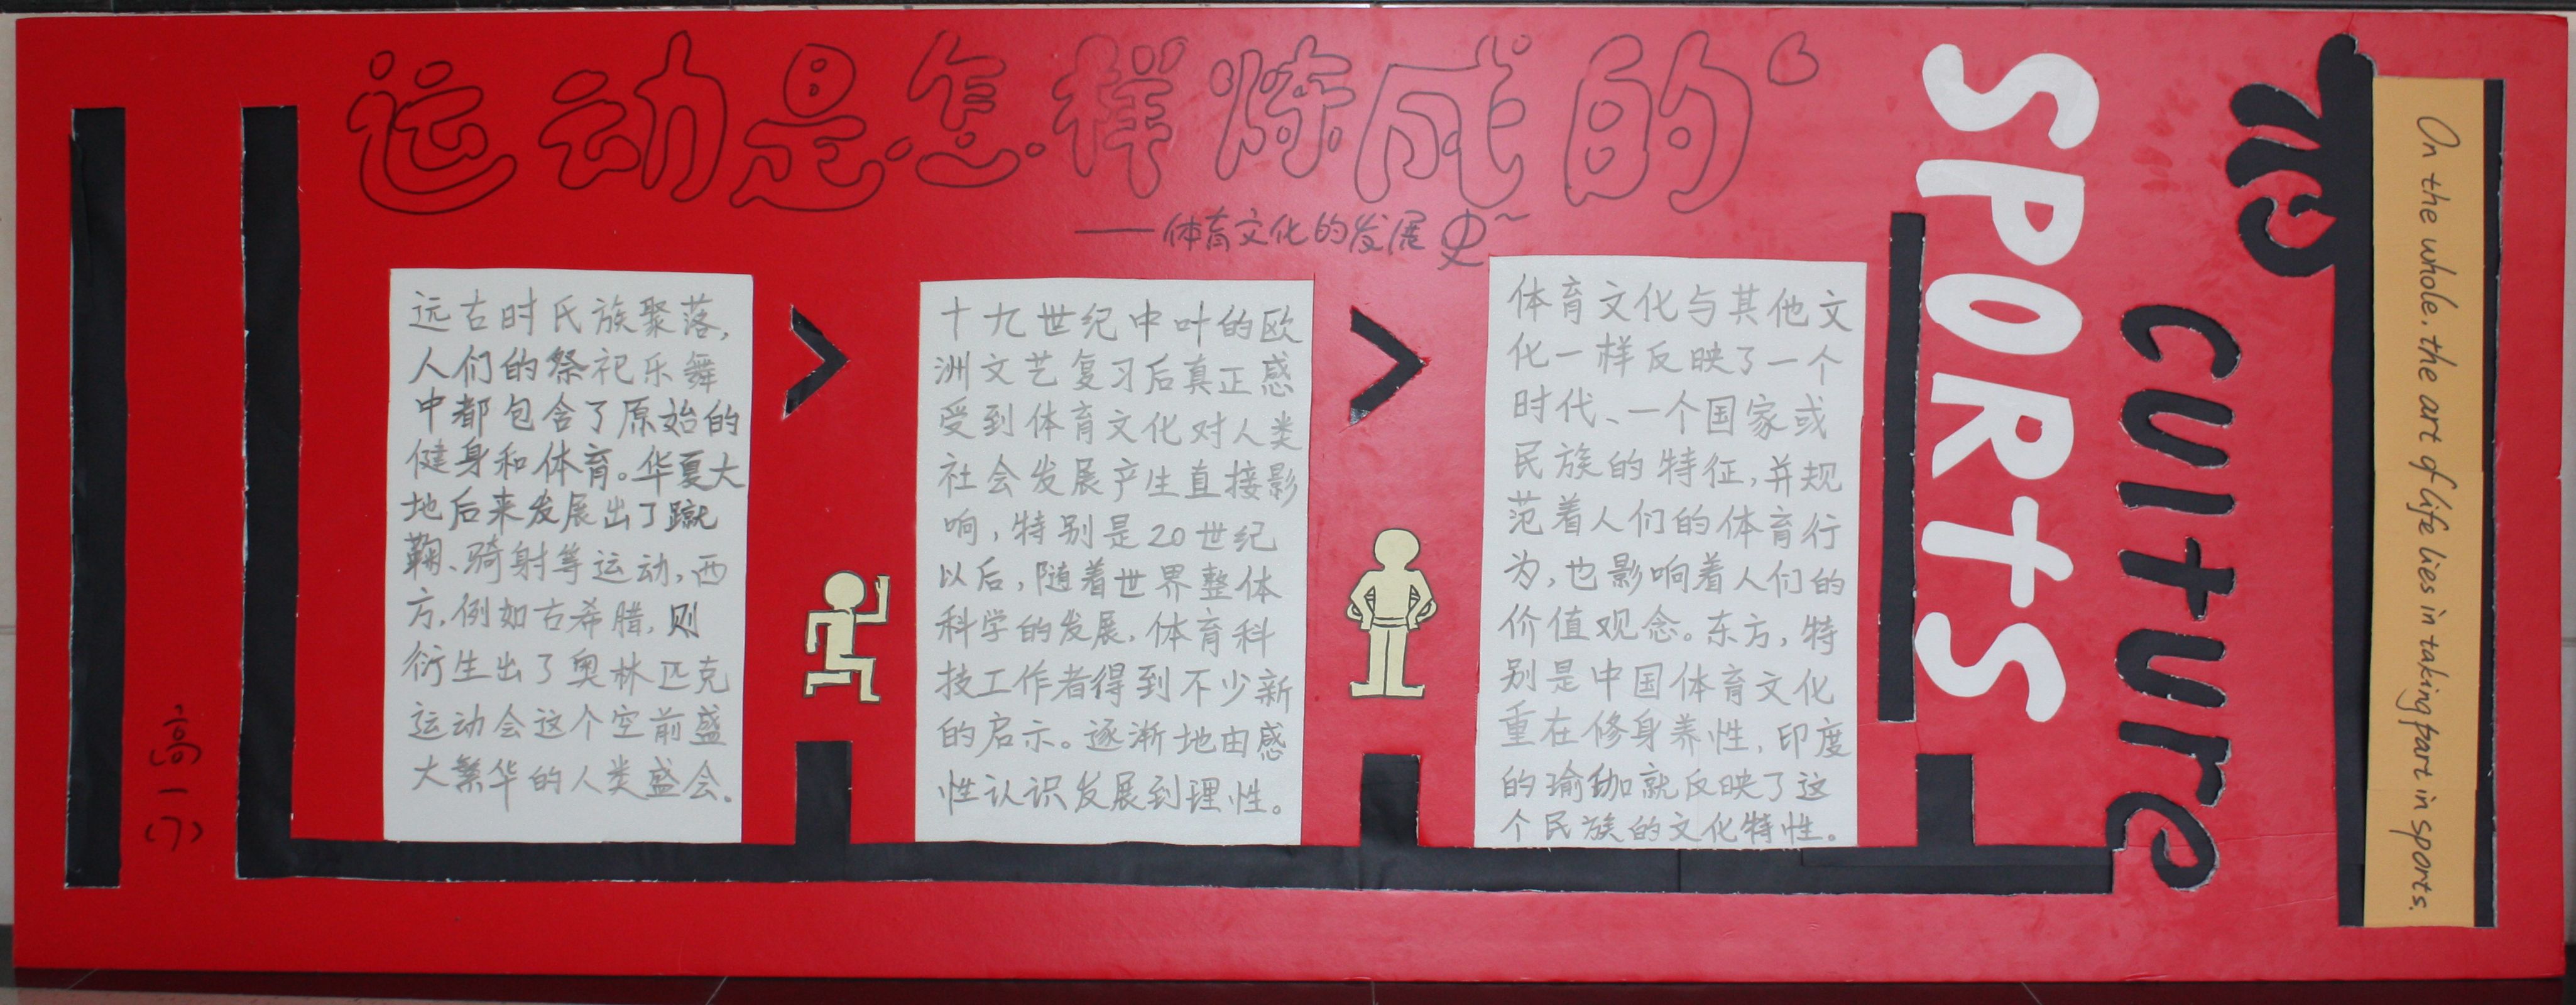 运动是怎样炼成的
——体育文化的发展史~
远古时氏族聚落,
人们的祭祀乐舞
中都包含了原始的
健身和体育。华夏大
地后来发展出了蹴
鞠、骑射等运动,西
方,例如古希腊,则
衍生出了奥林匹克
运动会这个空前盛
大繁华的人类盛会。
十九世纪中叶的欧
洲文艺复习后真正感
受到体育文化对人类
社会发展产生直接影
响,特别是20世纪
以后,随着世界整体
科学的发展,体育科
技工作者得到不少新
的启示。逐渐地由感
性认识发展到理性。
体育文化与其他文
化一样反映了一个
时代、一个国家或
民族的特征,并规
范着人们的体育行
为,也影响着人们的
价值观念。东方,特
别是中国体育文化
重在修身养性,印度
的瑜伽就反映了这
个民族的文化特性。
SPORtS
CUltUre
On the whole, the art of life lies in taking part in sports.
高一(7)